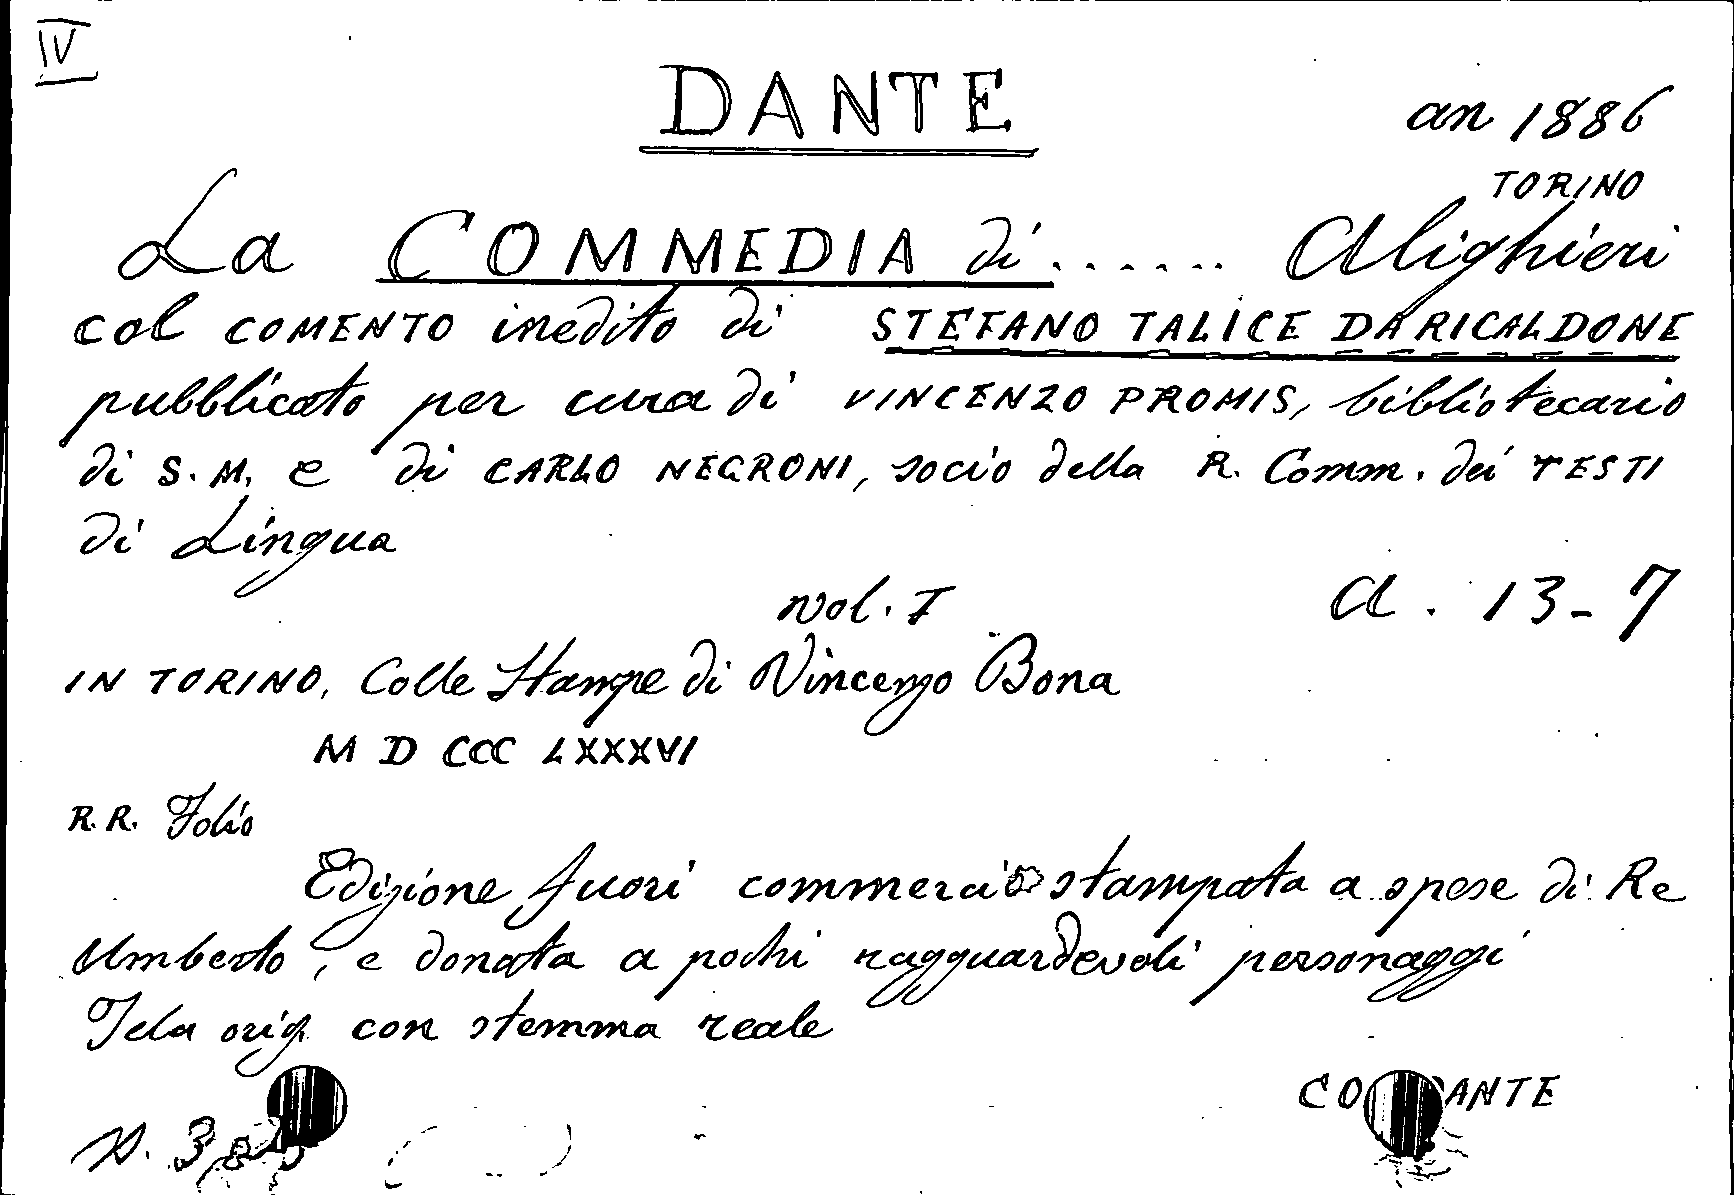 IV
DANTE
an 1886
TORINO
La COMMEDIA di ...... Alighieri
col COMENTO inedito di STEFANO TALICE DA RICALDONE
pubblicato per cura di VINCENZO PROMIS, bibliotecario
di S.M. e di CARLO NEGRONI, socio della R. Comm. dei TESTI
di Lingua
vol. I
a. 13-7
IN TORINO, Colle Stampe di Vincenzo Bona
M D CCC LXXXVI
R.R. Folio
Edizione fuori commercio stampata a spese di Re
Umberto, e donata a pochi ragguardevoli personaggi
Tela orig. con stemma reale
ANTE